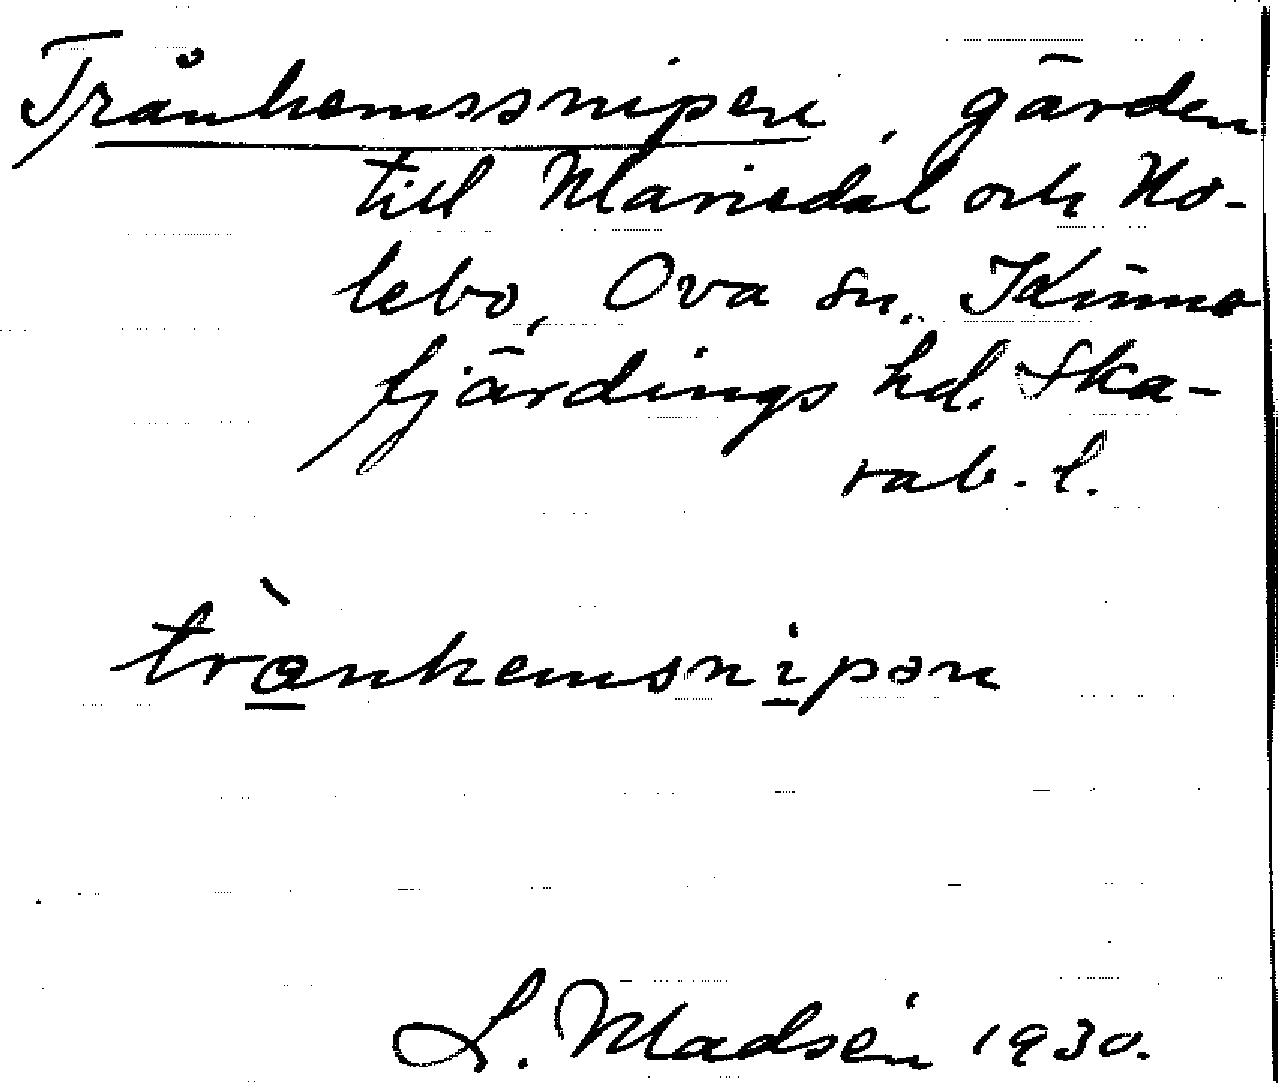 Trånhemssnipen, gärden
till Mariedal och No-
lebo, Ova sn, Kinne
fjärdings hd. Ska-
rab. l.
trànhemsnipən
L. Madsén 1930.